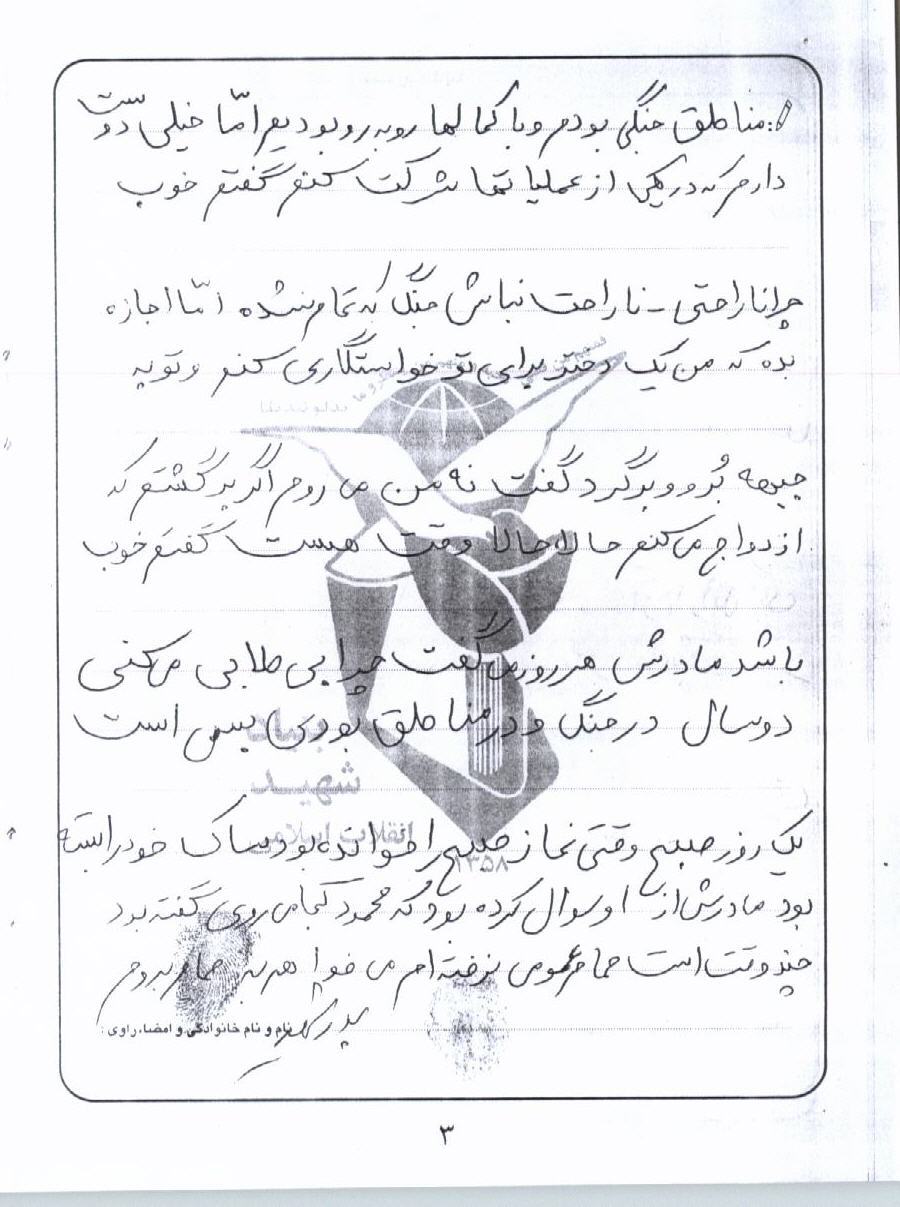 مناطق جنگی بودم و با کمالها روبه رو بودیم امّا خیلی دوست
دارم که در یکی از عملیاتها شرکت کنم گفتم خوب
چرا ناراحتی - ناراحت نباش جنگ که تمام نشده امّا اجازه
بده که من یک دختر برای تو خواستگاری کنم و تو به
جبهه بُرو و برگرد گفت نه من می روم اگر برگشتم که
ازدواج می کنم حالا حالا وقت هست گفتم خوب
باشد مادرش هر روز می گفت چرا بی طلابی می کنی
دوسال در جنگ و در مناطق بودی بس است
یک روز صبح وقتی نماز صبح را خوانده بود ساک خود را بسته
بود مادرش از او سوال کرده بود که محمود کجا می روی گفته بود
چند وقت است حمام عمومی نرفته ام می خواهم به حمام بروم
نام و نام خانوادگی و امضاء راوی:
پدر شهید
بنیاد
شهید
انقلاب اسلامی
۱۳۵۸
۳